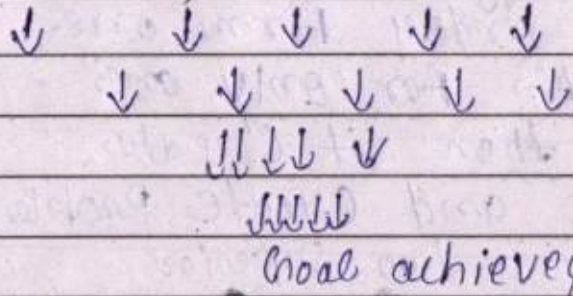 ↓ ↓ ↓ ↓ ↓
↓ ↓ ↓ ↓ ↓
↓↓ ↓ ↓ ↓
↓↓↓↓↓
Goal achieved